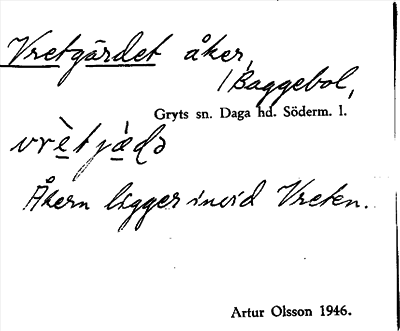 Vretgärdet åker,
/Baggebol,
Gryts sn. Daga hd. Söderm. l.
vrètjá̱də
Åkern ligger invid Vreten.
Artur Olsson 1946.